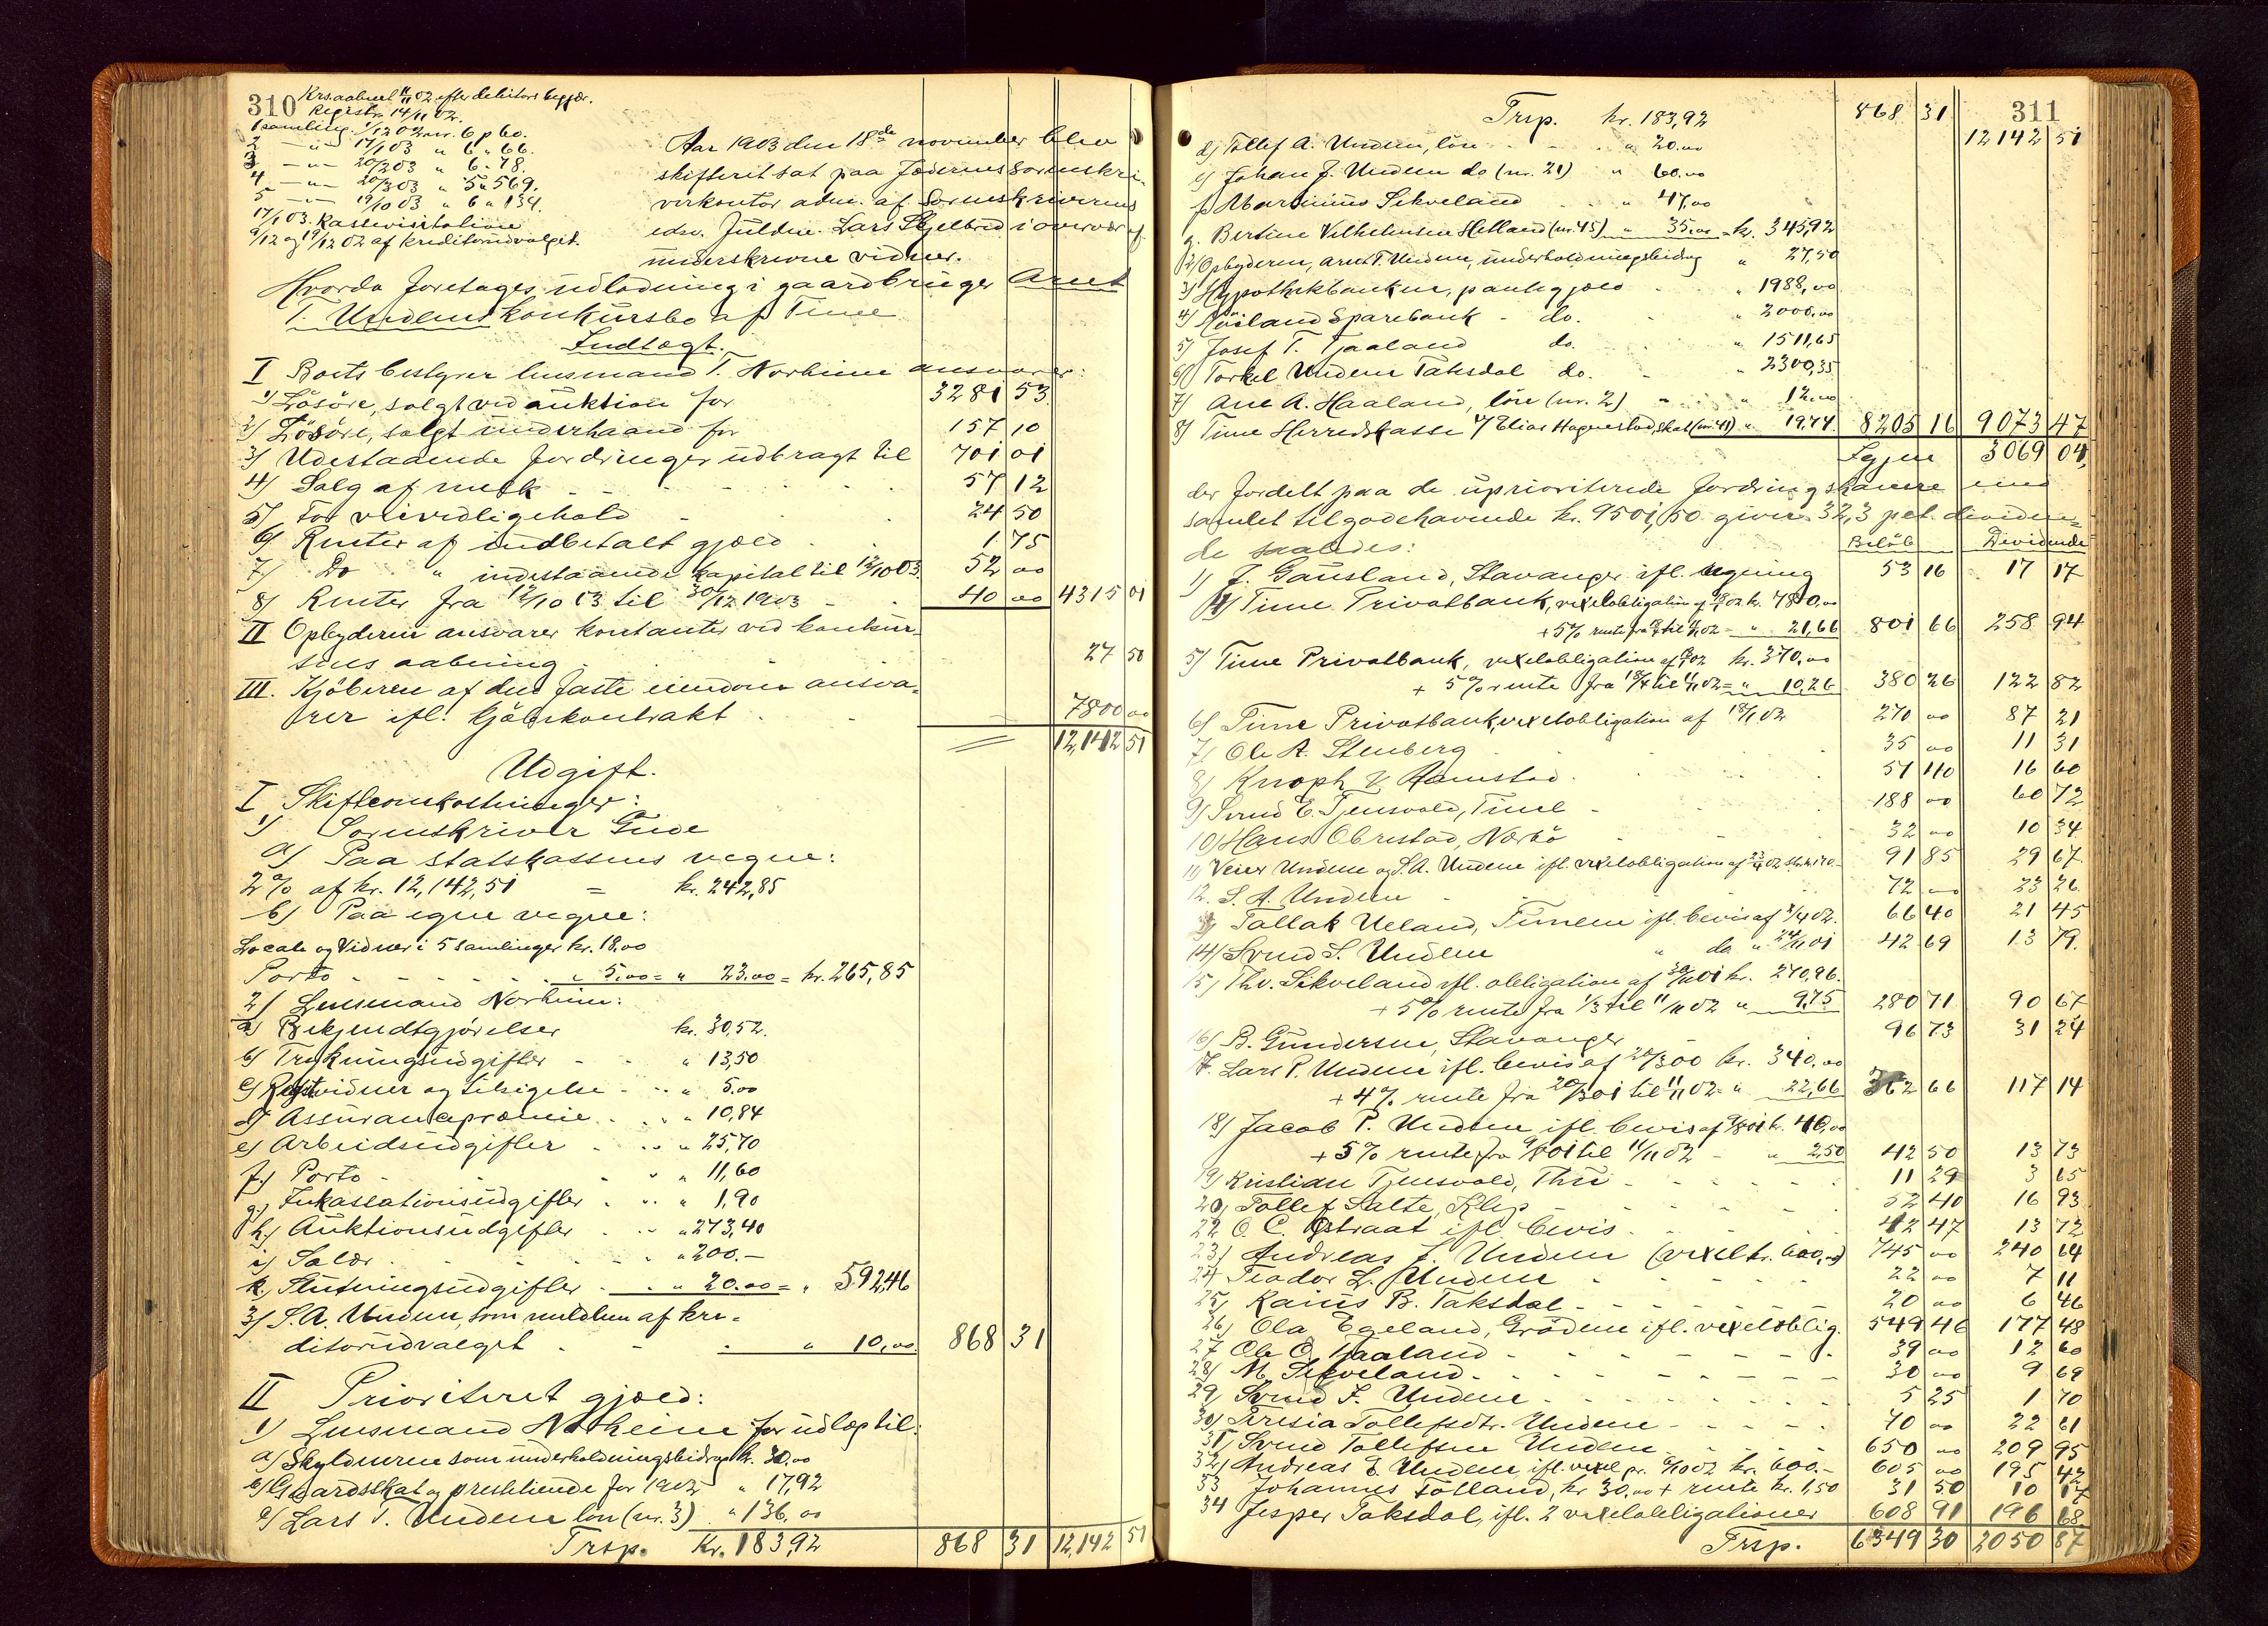 310
Krs. aabnet 11/11 02 efter debitors begjær.
Registr. 14/11 02.
1 samling 1/12 02 nr. 6 p 60.
2 — " — 17/1 03 " 6 " 66.
3 — " — 20/2 03 " 6 - 78.
4 — " — 20/3 03 " 5 " 569.
5 — " — 19/10 03 " 6 " 134.
17/1 03. Kassevisitation
9/12 og 19/12 02 af kreditorudvalget.
Aar 1903 den 18de november blev
skifteret sat paa Jæderens sorenskri-
verkontor adm. af Sorenskriverens
edsv. fuldm. Lars Skjelbred i overvær af
underskrevne vidner.
Hvorda foretages udlodning i gaardbruger Arnt
T. Undems konkursbo af Time
Indtægt.
I Boets bestyrer lensmand T. Norheim ansvarer:
1) Lösöre, solgt ved auktion for 3281 53
2) Lösöre, solgt underhaand for 157 10
3) Udestaaende fordringer udbragt til 701 01
4) Salg af melk - - - 57 12
5) For veivedligehold - 24 50
6) Renter af indbetalt gjæld 1.75
7) Do " indestaaende kapital til 12/10 03. 52 00
8) Renter fra 12/10 03 til 30/12 1903 - 40 00 4315 01
II Opbyderen ansvarer kontanter ved konkur-
sens aabning - 27 50
III. Kjöberen af den faste eiendom ansva-
rer ifl. kjöbekontrakt - 7800 00
12,142 51
Udgift.
I Skifteomkostninger:
1) Sorenskriver Gude
a) Paa statskassens vegne:
2% af kr. 12,142,51 = kr. 242,85
b) Paa egne vegne:
Locale og Vidner i 5 samlinger kr. 18.00
Porto - - - - " 5.00 = " 23.00 = kr. 265,85
2) Lensmand Norheim:
a) Bekjendtgjörelser kr. 30,52.
b) Trykningsudgifter - - " 13,50
c) Registr.vidner og tilsigelse - " 5,00
d) Assurancepræmie - " 10,84
e) Arbeidsudgifter - " 25,70
f) Porto - " 11,60
g) Inkassationsudgifter - " 1,90
h) Auktionsudgifter - " 273,40
i) Salær - " 200.—
k) Slutningsudgifter - " 20.00 = " 592,46
3) S. A. Undem, som medlem af kre-
ditorudvalget - " 10,00 868 31
II Prioriteret gjæld:
1) Lensmand Norheim for udlæg til:
a) Skyldneren som underholdningsbidrag kr. 30,00
b) Gaardsskat og prestetiende for 1902 " 17,92
c) Lars T. Undem lön (nr. 3) " 136,00
Trsp. Kr. 183,92 868 31 12,142 51
311
Trsp. kr. 183,92 868 31 12142 51
d) Tollef A. Undem, lön - - " 20.00
e) Johan J. Undem do (nr. 21) " 60.00
f) Martinius Sikveland " 47,00
g. Bertine Vilhelmsen Helland (nr. 45) " 35.00 = kr. 345,92
2) Opbyderen, Arnt T. Undem, underholdningsbidrag " 27,50
3) Hypothekbanken, pantegjæld " 1988,00
4) Höiland Sparebank - do. " 2000.00
5) Josef T. Tjaaland do. " 1511,65
6) Torkel Undem Taksdal do. " 2300,35
7) Ane A. Haaland, lön (nr. 2) " 12.00
8) Time Herredskasse v/ Elias Hognestad, skat (nr. 41) " 19,74. 8205 16 9073 47
Igjen 3069 04,
der fordelt paa de uprioriterede fordringshavere med
samlet tilgodehavende kr. 9501,50 giver 32,3 pct. dividen-
de saaledes: Belöb Dividende
1) J. Gausland, Stavanger ifl. regning 53 16 17 17
4) Time Privatbank, vexelobligation kr. 780,00
+ 5% rente " 21,66 801 66 258 94
5) Time Privatbank, vexelobligation kr. 370,00
+ 5% rente fra 18/4 til 11/11 02 = " 10,26 380 26 122 82
6) Time Privatbank, vexelobligation af 18/1 02 270 00 87 21
7) Ole A. Stenberg 35 00 11 31
8) Knoph & Ramstad. 51 40 16 60
9) Svend E. Tjensvold, Time - 188 00 60 72
10) Hans Obrestad, Nærbö 32 00 10 34
11) Veier Undem og S. A. Undem ifl. vexelobligation 91 85 29 67.
12. S. A. Undem 72 00 23 26
13) Tallak Ueland, Timem ifl. bevis af 2/4 02. 66 40 21 45
14) Svend S. Undem " do " 24/11 01 42 69 13 79.
15) Thv. Sikveland ifl. obligation af 30/10 01 kr. 270,96.
+ 5% rente fra 1/3 til 11/11 02 " 9,75 280 71 90 67
16) B. Gundersen, Stavanger - 96 73 31 24
17. Lars P. Undem ifl. bevis af 20/3 00 kr. 340,00
+ 4% rente fra 20/3 01 til 11/11 02 = " 22,66 362 66 117 14
18) Jacob P. Undem ifl. bevis af 9/8 01 kr. 40,00
+ 5% rente fra 9/8 01 til 11/11 02 - " 2,50 42 50 13 73
19) Kristian Tjensvold, Thu - - - 11 29 3 65
20) Tollef Salte, Klep - - - 52 40 16 93
22 O. C. Ostraat ifl. bevis - - 42 47 13 72
23) Andreas S. Undem (vexel kr. 600,00) 745 00 240 64
24 Teodor L. Undem 22 00 7 11
25) Rasius B. Taksdal - - - 20 00 6 46
26) Ola Egeland, Grödem ifl. vexeloblig. 549 46 177 48
27 Ole O. Tjaaland - - - 39 00 12 60
28) M. Sikveland - - - 30 00 9 69
29 Svend F. Undem - - - 5 25 1 70
30) Teresia Tollefsdtr. Undem - - - 70 00 22 61
31) Svend Tollefsen Undem - - - 650 00 209 95
32) Andreas E. Undem, ifl. vexel kr. 600.- 605 00 195 42
33 Johannes Tolland, kr 30.00 + rente kr. 1,50 31 50 10 17
34 Jesper Taksdal, ifl. 2 vexelobligationer 608 91 196 68
Trsp. 6349 30 2050 87